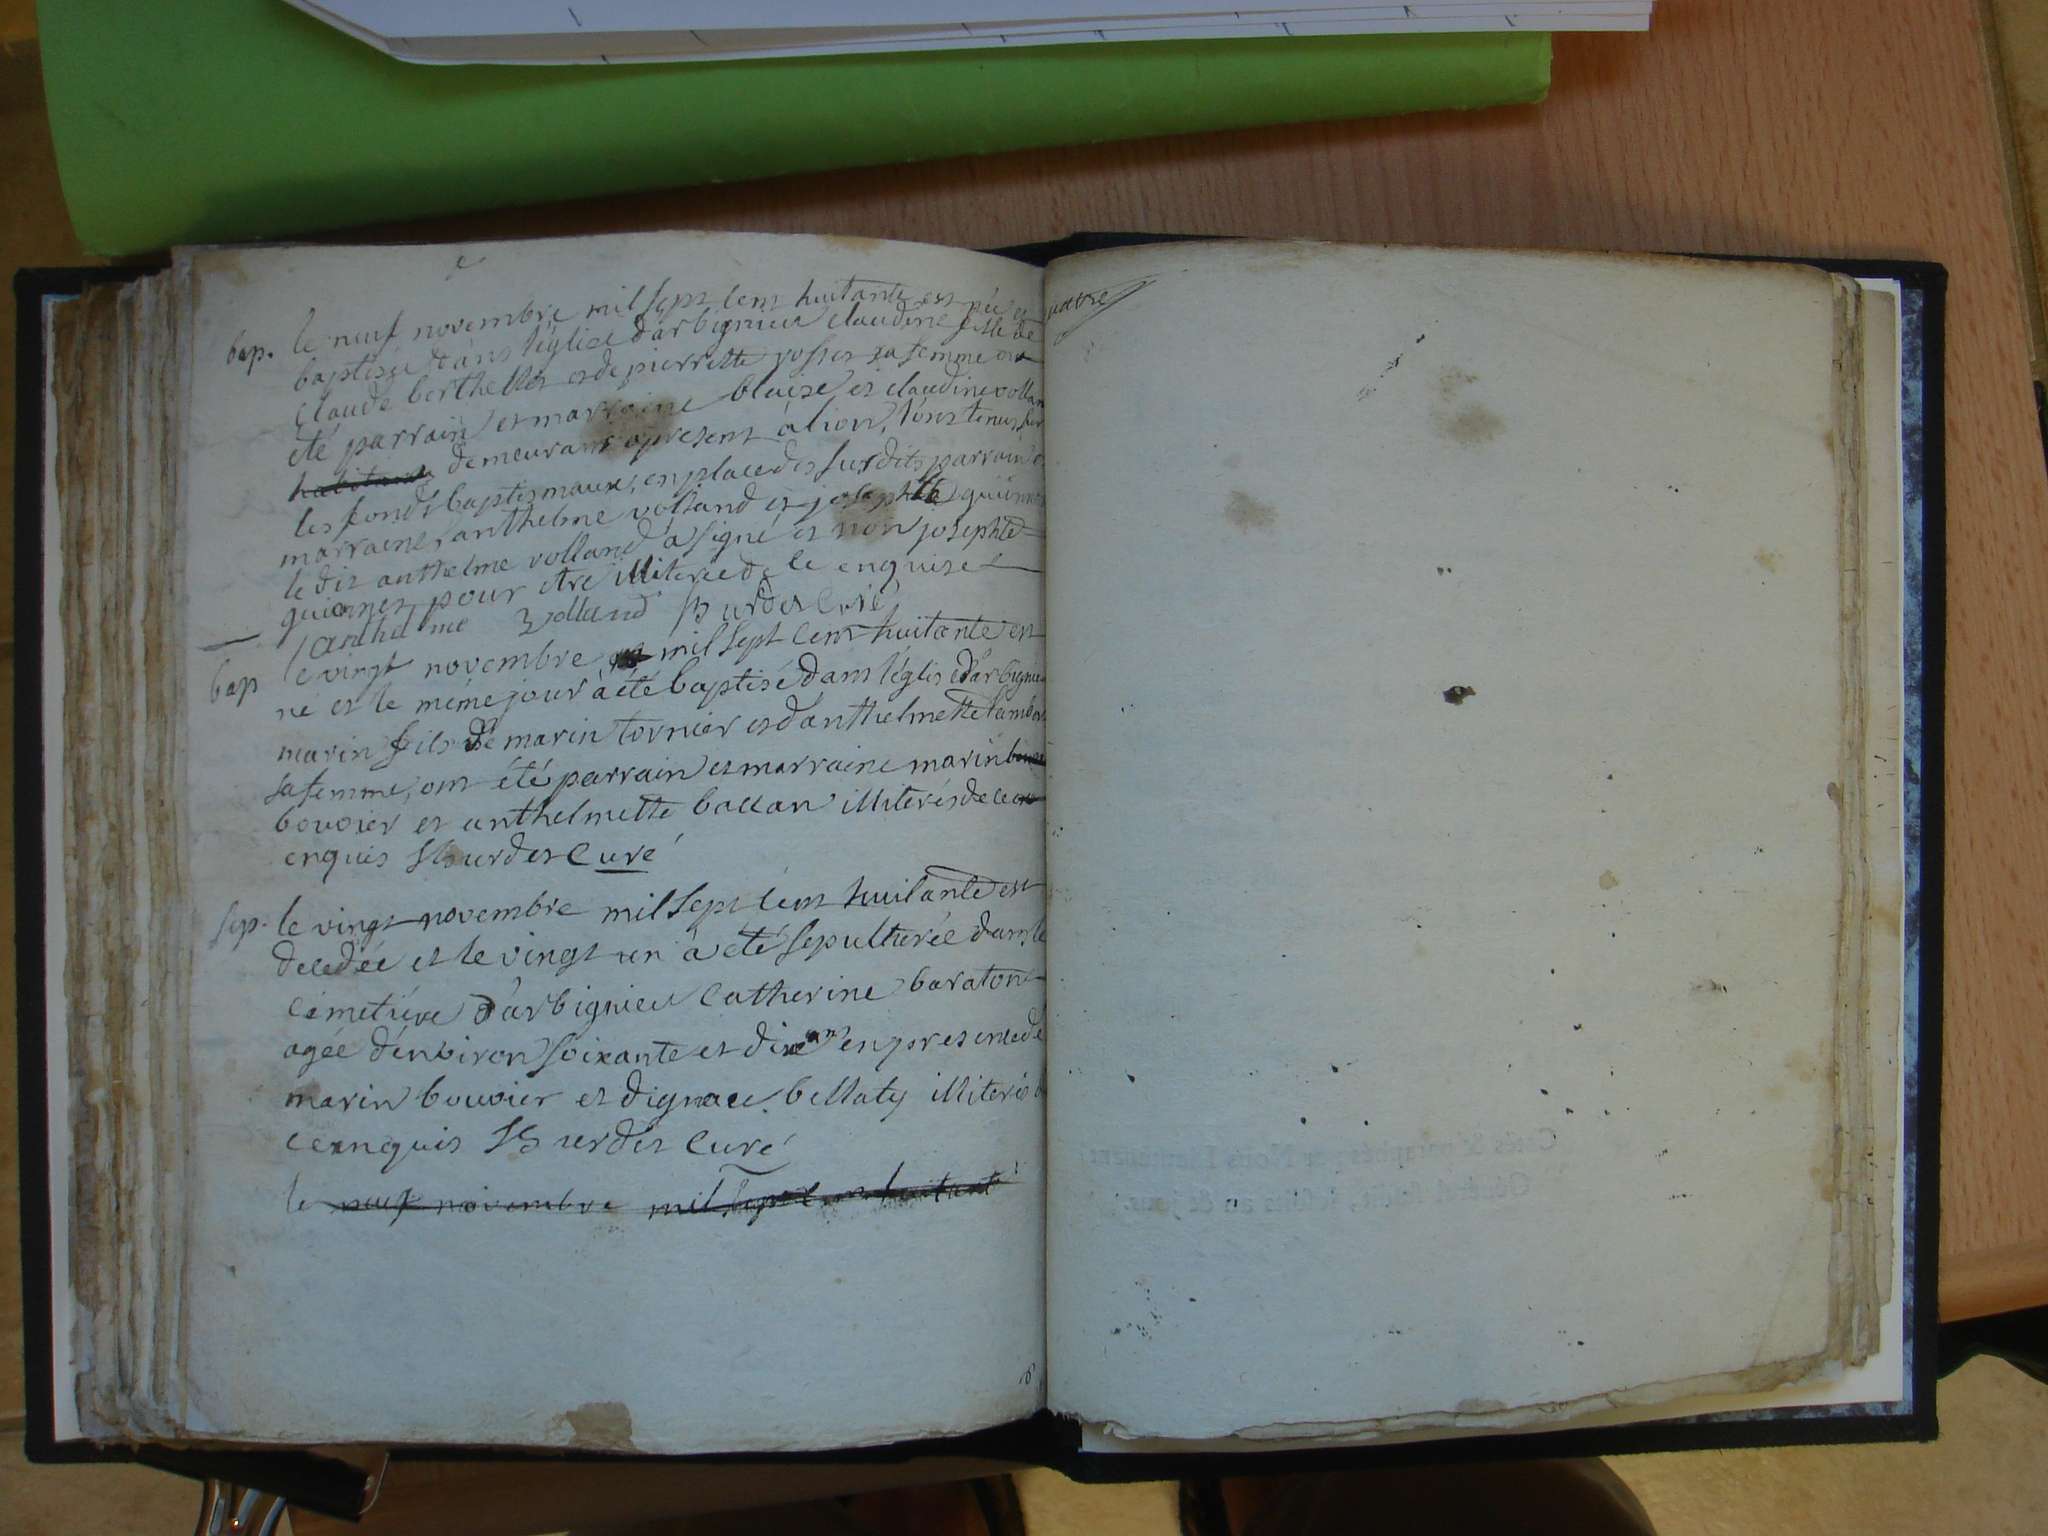 bap. le neuf novembre mil sept cent huitante est née et
baptisée dans l'église d'arbignieu claudine fille de
claude berthellet et de pierrette rosset sa femme ont
été parrain et marraine blaise et claudine vollan
habitans demeurans apresent à lion, l'ons tenus sur
les fonds baptismaux, en place des susdits parrain et
marraine, anthelme volland et josephte guionnet
le dit anthelme volland à signé et non josephte
guionnet pour etre illiterée de ce enquise
anthelme Volland Burdet Curé
bap le vingt novembre mil sept cent huitante est
né et le méme jour à été baptisé dans l'église d'arbignieu
marin fils de marin tornier et d'anthelmette lambert
sa femme, ont été parrain et marraine marin
bovoier et anthelmette ballan illiterés de ce
enquis Burdet Curé
sep. le vingt novembre mil sept cent huitante est
decedée et le vingt un à été sepulturée dans le
cimetière d'arbignieu Catherine baraton
agée d'environ soixante et dix ans en presence de
marin bouvier et d'ignace bellaty illiterés
ce enquis Burdet Curé
le neuf novembre mil sept cent huitante